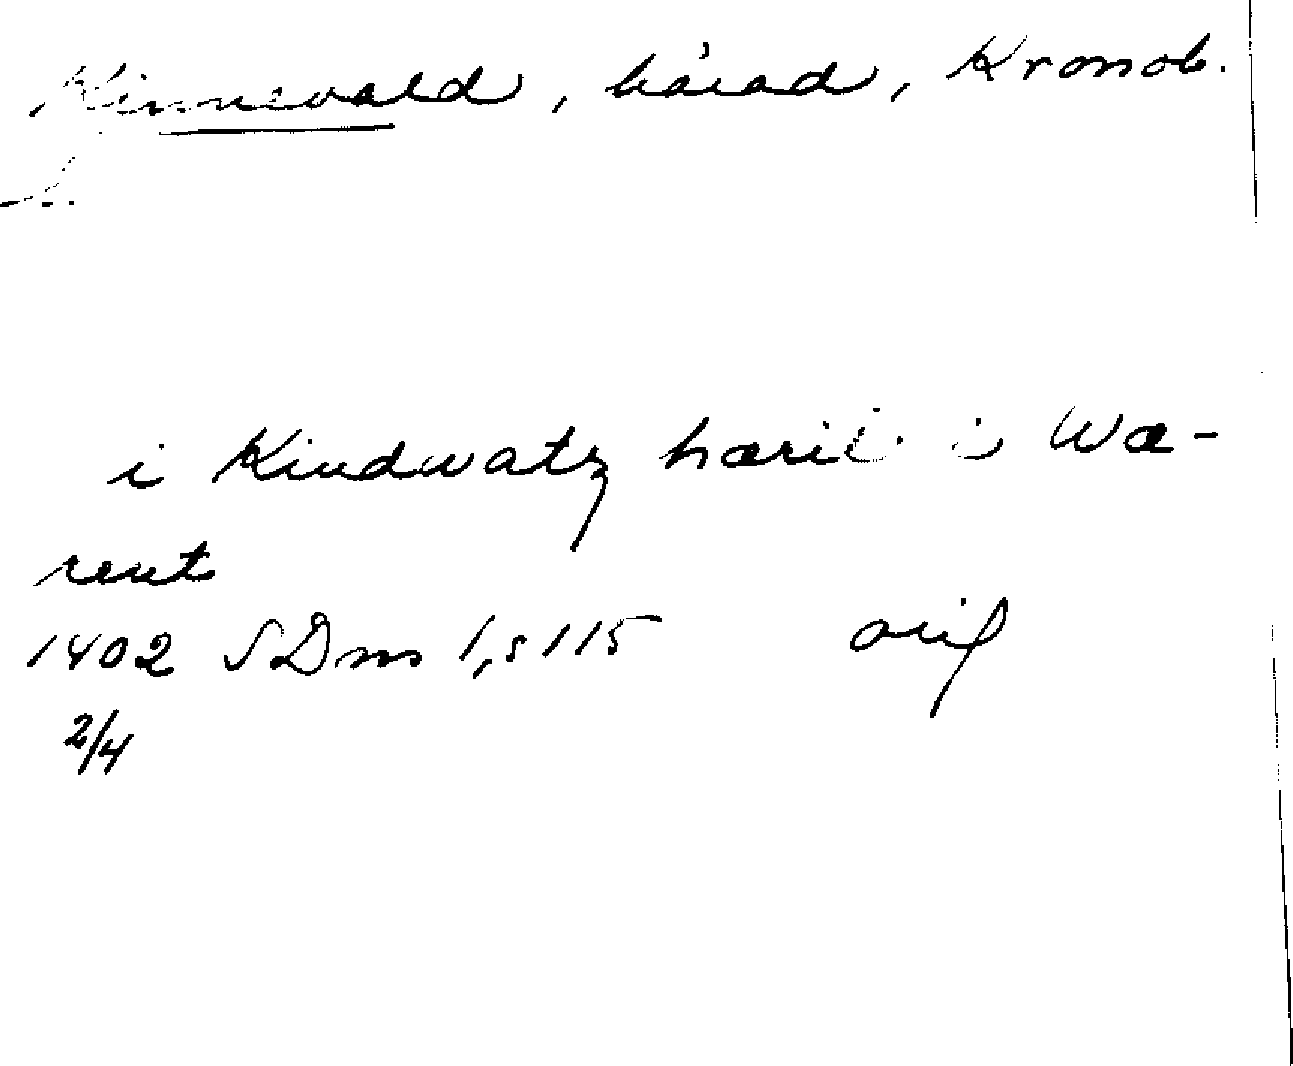 Kinnevald, härad, Kronob.
i Kindwatz hæri i Wæ-
rent
1402 SDns 1, s 115 orig
2/4